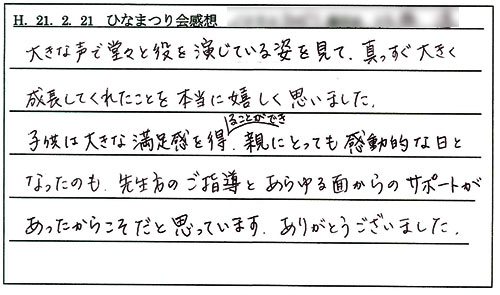 H. 21. 2. 21 ひなまつり会感想
大きな声で堂々と役を演じている姿を見て、真っすぐ大きく
成長してくれたことを本当に嬉しく思いました。
子供は大きな満足感を得ることができ、親にとっても感動的な日と
なったのも、先生方のご指導とあらゆる面からのサポートが
あったからこそだと思っています。ありがとうございました。